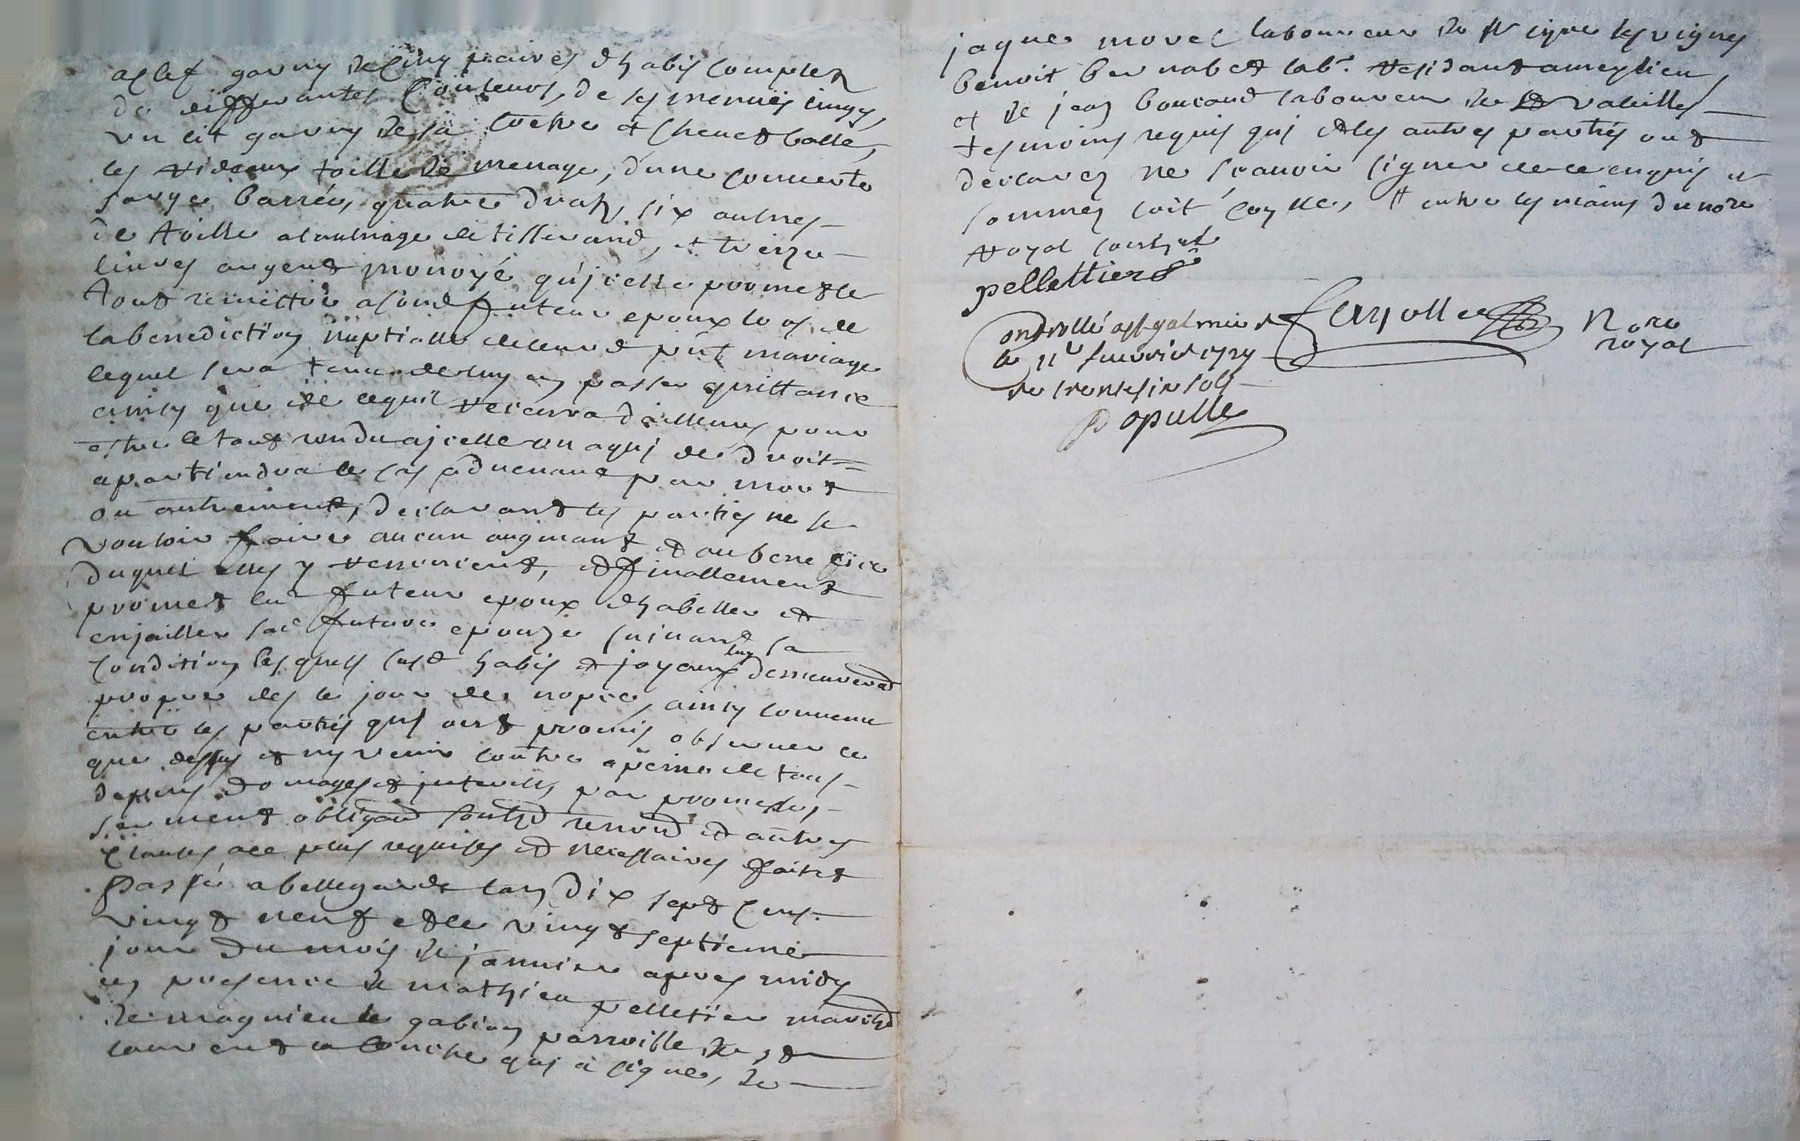 aclef garny de cinq paires d'habis complets
de differantes couleurs, de ses menües linges,
un lit garny de sa coetre et chevet balle,
les rideaux toille de menage, d'une couverte
sarge barrée, quatre draps, six autres
de toille a l'aulnage de tisserand, et treize
livres argent monoyé qu'jcelle promet de
tout remettre a sond. futeur epoux le jo. de
la benediction nuptialle de leurd. pnt mariage
lequel sera tenu de luy en passer quittance
ainsy que de ce qu'il recevra d'ailleurs pour
estre le tout rendu a jcelle ou a qui de droit
apartiendra le cas advenant par mort
ou autrement, declarant les parties ne se
vouloir faire aucun augmant et au benefice
duquel elles y renoncent, et finallement
promet led. futeur epoux d'habiller et
enjailler sad. future epouze suivant sa
condition, lesquels susd. habis et joyaux luy demeureront
propre des le jour des nopces, ainsy convenu
entre les parties qui ont promis observer ce
que dessus et ny venir contre a peine de tous
depens domages et jnterests, par promesses,
serment obligaõn soubmõn renonõn et autres
clauses a ce plus requises et necessaires fait et
passé a bellegarde l'an dix sept cens
vingt neuf et le vingt septieme
jour du mois de janvier apres midy
en presence de mathieu pelletier march.
de magnieu le gabion parroisse de st
laurent a conche qui a signé, de
jaques morel laboureur de st cyre les vignes
benoit bernabet lab.r residant a meylieu
et de jean boucand laboureur de vaeilles
tesmoins requis qui et les autres parties ont
declarez ne scavoir signer de ce enquis et
sommez soit coplle, entre les mains du nore
royal soubsné
pellettier
Controllé a st galmier
le 11e fevrier 1729
re trente six sols
Populle
Fayolle
Nore
royal